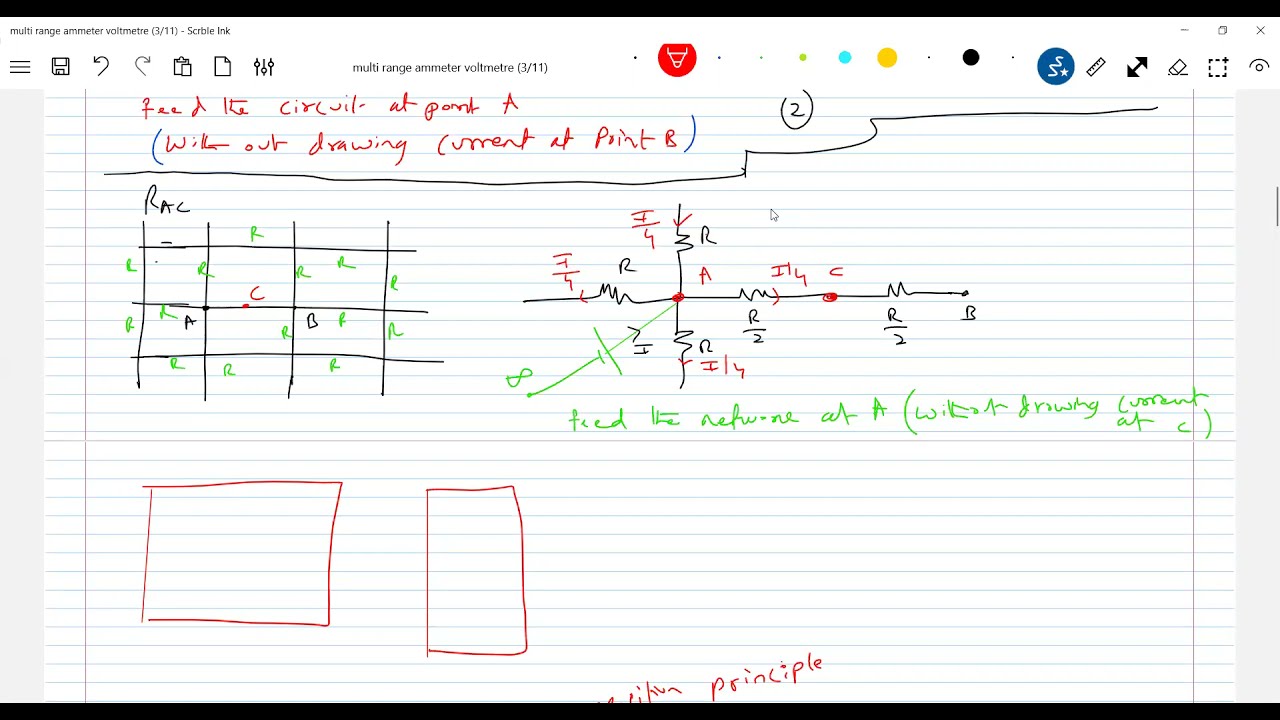 multi range ammeter voltmetre (3/11) - Scrble Ink
multi range ammeter voltmetre (3/11)
feed the circuit at point A
(2)
(with out drawing current at Point B)
R_AC
R
R
R
R
R
R
C
R
A
B
R
R
R
R
R
R
R
I/4
R
I/4
R
A
I/4
C
R/2
R/2
B
I
R
I/4
∞
feed the network at A (without drawing current at C)
principle